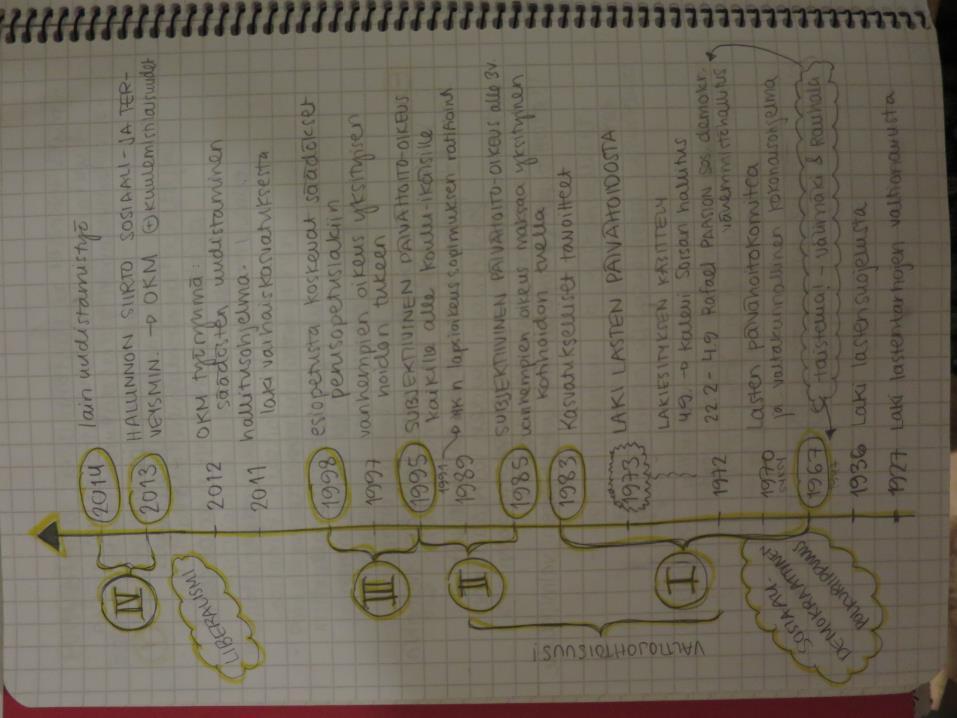 2014 lain uudistamistyö
2013 HALLINNON SIIRTO SOSIAALI- JA TER-
VEYSMIN. → OKM ⊕ kuulemistilaisuudet
2012 OKM työryhmä:
säädösten uudistaminen
2011 hallitusohjelma:
laki varhaiskasvatuksesta
1998 esiopetusta koskevat säädökset
perusopetuslakiin
1997 vanhempien oikeus yksityisen
hoidon tukeen
1995 SUBJEKTIIVINEN PÄIVÄHOITO-OIKEUS
kaikille alle koulu-ikäisille
1991
1989 → YK:n lapsioikeussopimuksen ratifiointi
1985 SUBJEKTIIVINEN PÄIVÄHOITO-OIKEUS alle 3v
vanhempien oikeus maksaa yksityinen
kotihoidon tuella
1983 Kasvatukselliset tavoitteet
1973 LAKI LASTEN PÄIVÄHOIDOSTA
LAKIESITYKSEN KÄSITTELY
4.9. → Kalevi Sorsan hallitus
1972 22.2 - 4.9 Rafael PAASION sos.demokr.
vähemmistöhallitus
1970 Lasten päivähoitokomitea
ja valtakunnallinen kokonaisohjelma
1967 Haistelma! - Välimäki & Rauhala
1936 Laki lastensuojelusta
1927 Laki lastentarhojen valtionavusta
IV
LIBERALISMI
III
II
I
VALTIOJOHTOISUUS!
SOSIAALI-
DEMOKRAATTINEN
POLKURIIPPUVUUS